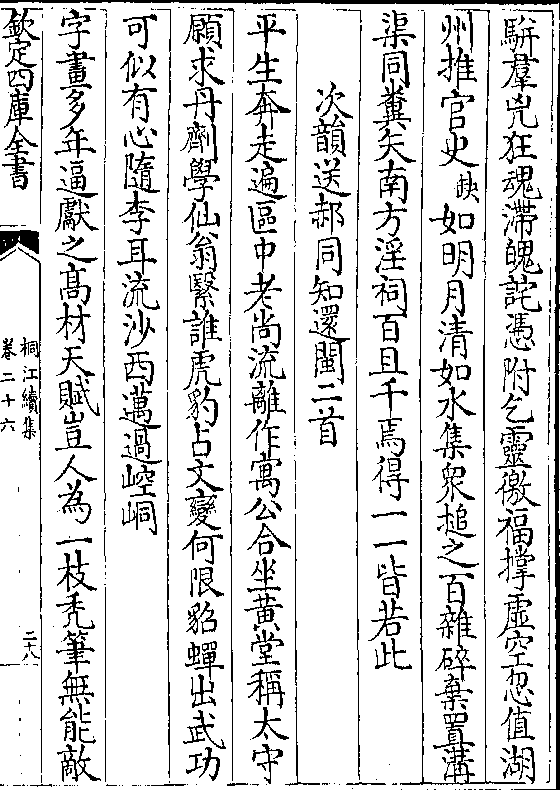 駢羣兇狂魂滯魄詫憑附乞靈徼福撑虚空忽值湖
州推官史缺如明月清如水集衆搥之百雜碎棄置溝
渠同糞矢南方淫祠百且千焉得一一皆若此
次韻送郝同知還閩二首
平生奔走遍區中老尚流離作寓公合坐黄堂稱太守
願求丹劑學仙翁緊誰虎豹占文變何限貂蟬出武功
可似有心隨李耳流沙西邁過崆峒
字畫多年逼獻之髙材天賦豈人為一枝秃筆無能敵
欽定四庫全書
桐江續集
卷二十六
二八